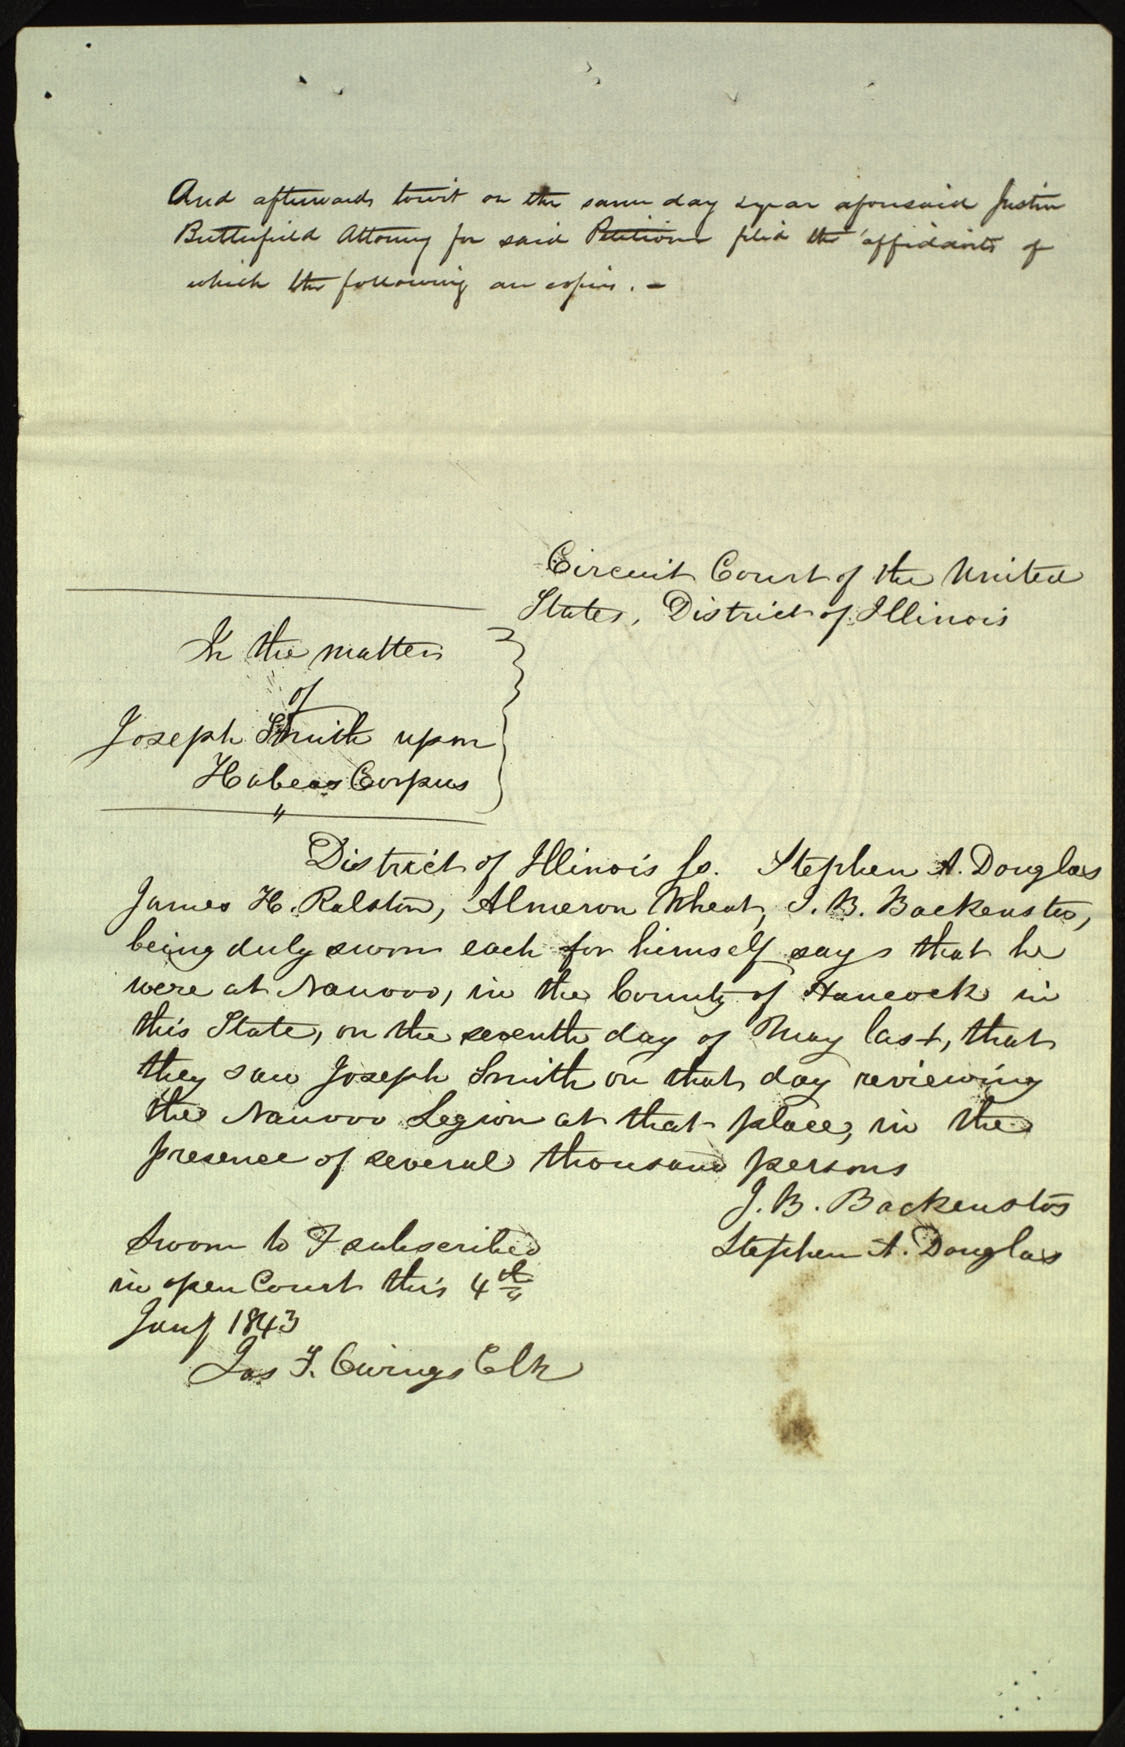 And afterwards towit on the same day & year aforesaid Justin
Butterfield Attorney for said Petitioner filed the affidavits of
which the following are copies. –
Circuit Court of the United
States, District of Illinois
In the matter
of
Joseph Smith upon
Habeas Corpus
"
District of Illinois Ss. Stephen A. Douglas
James H. Ralston, Almeron Wheat, J. B. Backenstos,
being duly sworn each for himself says that he
were at Nauvoo, in the County of Hancock in
this State, on the seventh day of May last, that
they saw Joseph Smith on that day reviewing
the Nauvoo Legion at that place, in the
presence of several thousand persons
J. B. Backenstos
Stephen A. Douglas
Sworn to & subscribed
in open Court this 4th
Jany 1843
Jas F. Owings Clk